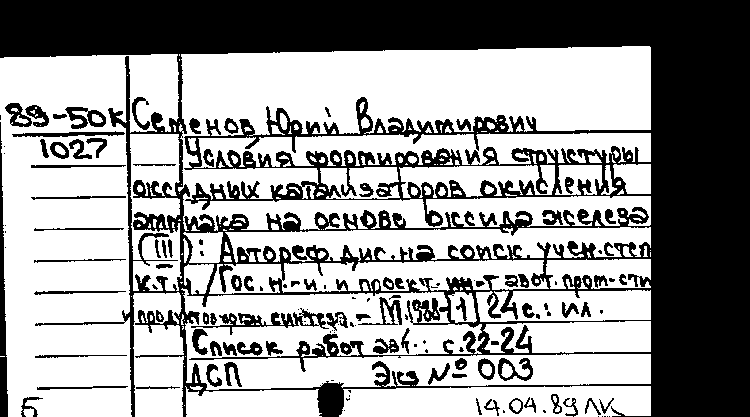 89-50К Семенов Юрий Владимирович
1027 Условия формирования структуры
оксидных катализаторов окисления
аммиака на основе оксида железа
(III): Автореф. дис. на соиск. учен. степ
к.т.н. / Гос. н.-и. и проект. ин-т азот. пром-сти
и продуктов орган. синтеза. - М. 1988 - [1], 24 с.: ил.
Список работ авт.: с. 22-24
ДСП Экз № 003
Б 14.04.89 ЛК